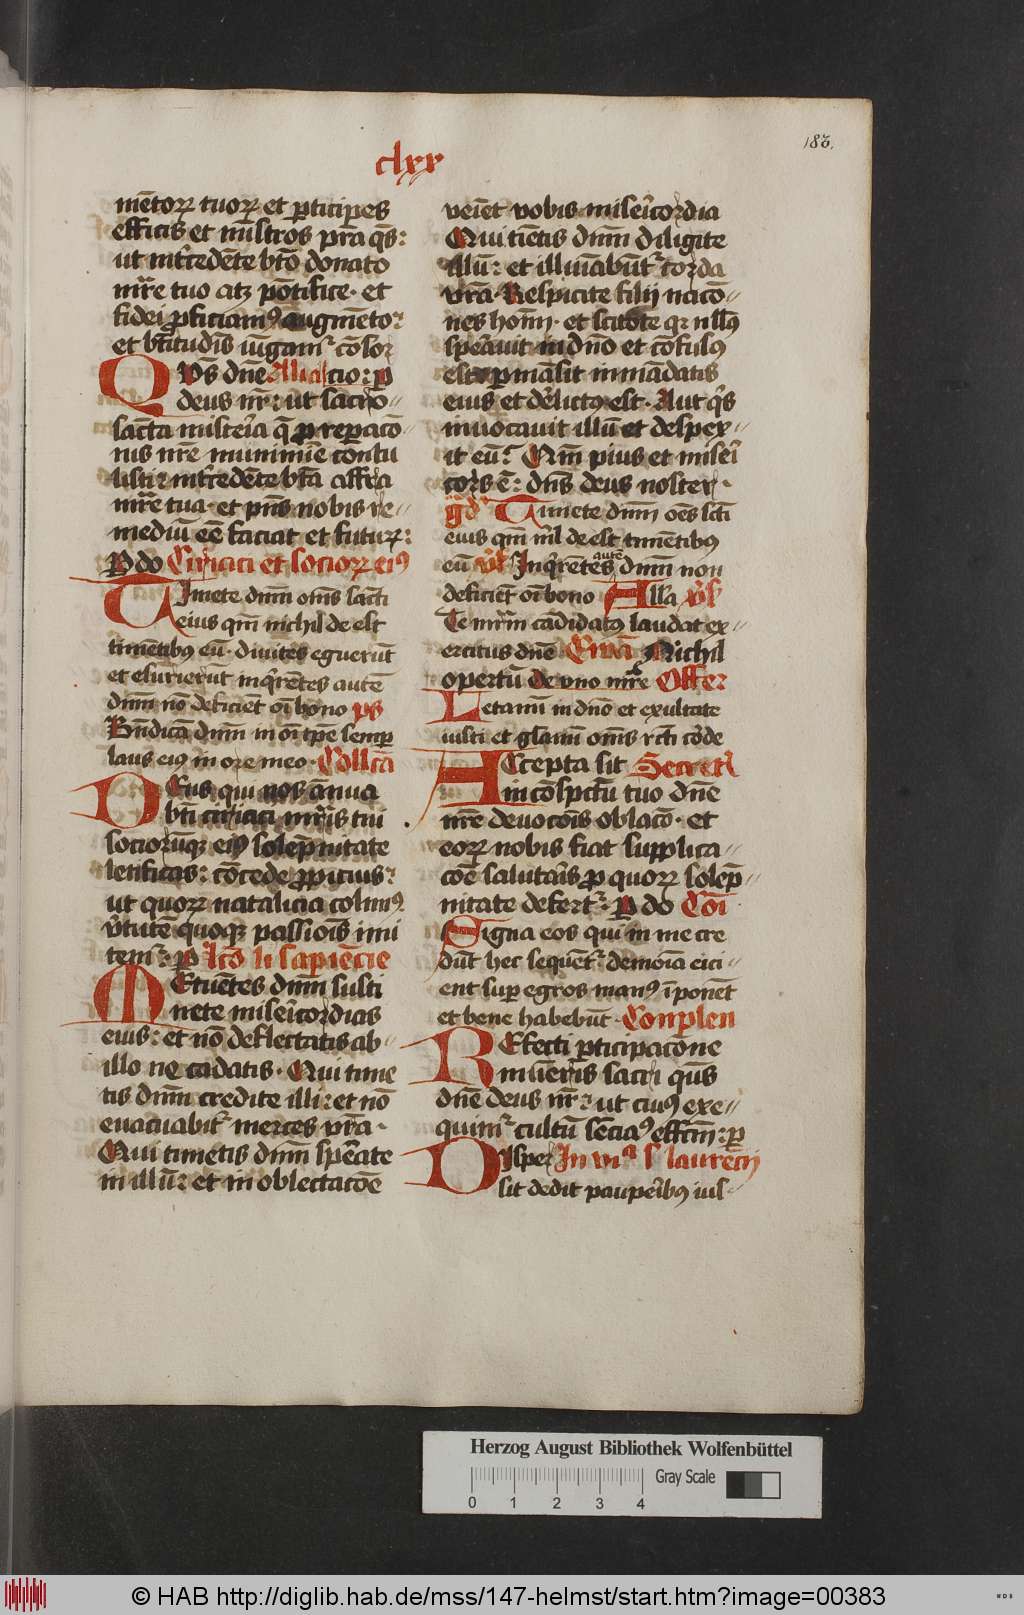 clxx
183.
mētoꝝ tuoꝝ et ꝑticipes
efficis et mīstros prā qs̄:
ut int̄cedēte btō donato
mr̄e tuo atqꝫ pōtifice· et
fidei ꝓficiamꝰ augmēto:
et btītudīs iūgamr̄ cōsor
Qvs̄ dn̄e Alia cio: ꝑ
deus nr̄: ut sacrō
sācta misteīa q̄ ꝓ reꝑacō
nis nr̄e munimīe contu
listi: int̄cedēte btā affra
mr̄e tua· et pn̄s nobis re
mediū eē faciat et futuꝝ:
ꝑ do Ciriaci et socioꝝ eiꝰ
Timete dnm̄ om̄s sancti
eius qm̄ nichil de est
timētibꝰ eū· divites eguerūt
et esurierūt inqrētes autē
dnm̄ nō deficiēt oī bono ps
Bn̄dicā dnm̄ in oī tꝑe semꝑ
laus eiꝰ in ore meo· Collcā
Deus qui nos ānua
btī ciriaci mr̄is tui
sociorūqꝫ eiꝰ solep̄nitate
letificas: cōcede ꝓpicius:
ut quoꝝ natalicia colimꝰ
v̄tutē quoqꝫ passiois̄ imi
temr̄: ꝑ Lcō li sapiēcie
Metuētes dnm̄ susti
nete misericordias
eius: et nō deflectatis ab
illo ne cadatis· Qui time
tis dnm̄ credite illi: et nō
evacuabit̄ merces vrā·
Qui timetis dnm̄ sperate
in illū: et in oblectacōe
veiēt vobis misericordia
Qui tiētis dnm̄ diligite
illū: et illuīabūt̄ corda
vrā· Respicite filij nacō
nes homī· et scitote qr nllꝰ
speravit in dn̄o et cōfusꝰ
est ꝑmāsit in mādatis
eius et derlictꝰ est· Aut qs
invocavit illū et despex
it eū: Qm̄ pius et miseri
cors ē: dn̄s deus noster·
gd Timete dnm̄ oēs scti
eius qm̄ nil de est timētibꝰ
eū vs Inqrētes autē dnm̄ non
deficiēt oī bono Alla vs
Te mr̄m cādidatꝰ laudat ex
ercitus dn̄e Ewā Nichil
opertū de uno mr̄e Offer
Letamī in dn̄o et exultate
iusti et glamī om̄s rcti cōde
Accepta sit Secret
in cōspctū tuo dn̄e
nr̄e devocōis oblacō· et
eoꝝ nobis fiat supplica
cōe salutais ꝓ quoꝝ solep̄
nitate defert̄: ꝑ do Cōī
Signa eos qui in me cre
dūt hec sequēt̄ demōia eici
ent suꝑ egros manꝰ īponēt
et bene habebūt· Conplen
Refecti ꝑticipacōne
muneris sacri qus̄
dn̄e deus nr̄: ut cuiꝰ exe
quimr̄ cultū sēciaꝰ effctm̄: ꝑ
Disper In via s laurēcij
sit dedit pauꝑibꝰ ius
Herzog August Bibliothek Wolfenbüttel
Gray Scale
0 1 2 3 4
© HAB http://diglib.hab.de/mss/147-helmst/start.htm?image=00383